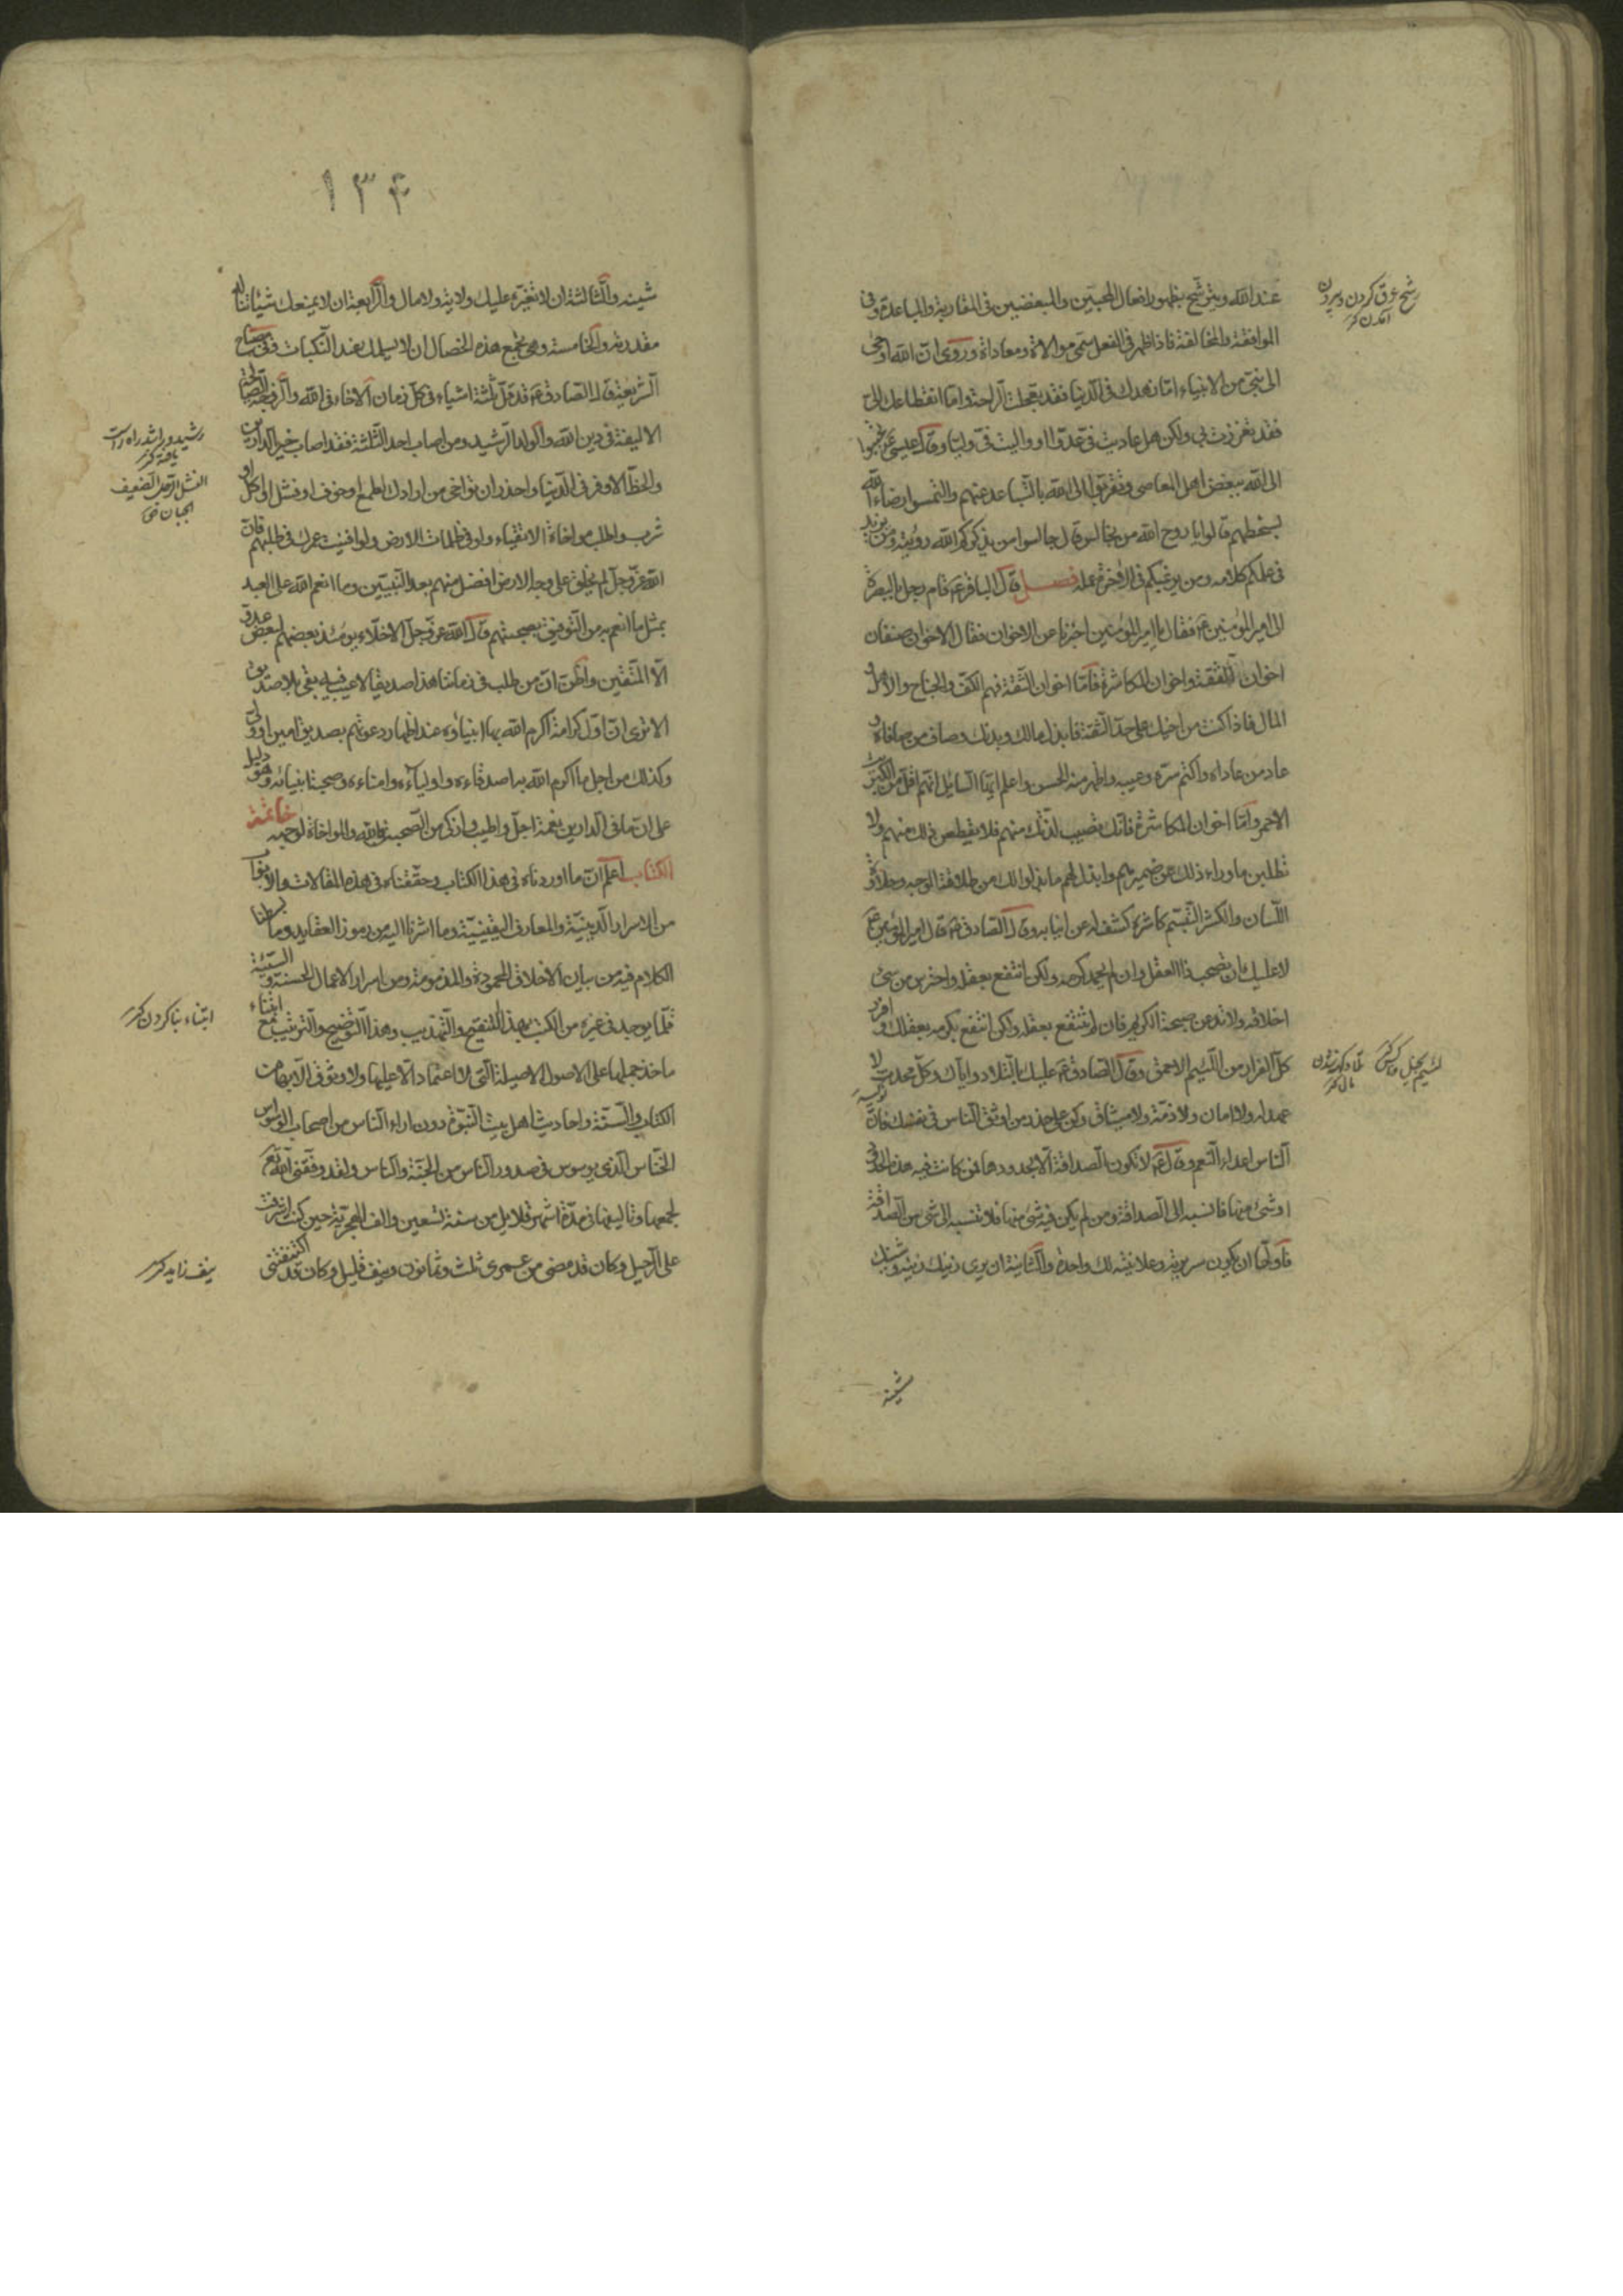 عند الله ويترشح بظهور افعال المحبين والمبغضين فى المقاربة والمباعدة وفى
الموافقة والمخالفة فاذا ظهر فى الفعل سمى موالاة ومعاداة وروى ان الله اوحى
الى نبى من الانبياء اما زهدك فى الدنيا فقد تعجلت الراحة واما انقطاعك الى
فقد تعززت بى ولكن هل عاديت فى عدوا او واليت فى وليا وقال عيسى ع تحببوا
الى الله ببغض اهل المعاصى وتقربوا الى الله بالتباعد عنهم والتمسوا رضاء الله
بسخطهم قالوا يا روح الله من نجالس قال جالسوا من يذكركم الله رؤيته ومن يزيد
فى علمكم كلامه ومن يرغبكم فى الاخرة عمله فصل قال الباقر ع قام رجل بالبصرة
الى امير المؤمنين ع فقال يا امير المؤمنين اخبرنا عن الاخوان فقال الاخوان صنفان
اخوان الثقة واخوان المكاشرة فاما اخوان الثقة فهم الكف والجناح والاهل و
المال فاذا كنت من اخيك على حد الثقة فابذل مالك وبدنك وصاف من صافاه و
عاد من عاداه واكتم سره وعيبه واظهر منه الحسن واعلم ايها السايل انهم اقل من الكبريت
الاحمر واما اخوان المكاشرة فانك تصيب لذتك منهم فلا تقطعن ذلك منهم ولا
تطلبن ما وراء ذلك عن ضميرهم وابذل لهم ما بذلوا لك من طلاقة الوجه وحلاوة
اللسان والكشر التبسم كاشره كشف له عن انيابه وقال الصادق ع قال امير المؤمنين ع
لا عليك ان تصحب ذا العقل وان لم تحمد كرمه ولكن انتفع بعقله واحترس من سيئ
اخلاقه ولا تدعن صحبة الكريم فان لم تنتفع بعقله ولكن انتفع بكرمه بعقلك وافرر
كل الفرار من اللئيم الاحمق وقال الصادق ع عليك بالتلاد واياك وكل محدث لا
عهد له ولا امان ولا ذمة ولا ميثاق وكن على حذر من اوثق الناس فى نفسك فان
الناس اعداء النعم وقال ع لا تكون الصداقة الا بحدودها فمن كانت فيه هذه الحدود
او شئ منها فانسبه الى الصداقة ومن لم يكن فيه شئ منها فلا تنسبه الى شئ من الصداقة
فاولها ان يكون سريرته وعلانيته لك واحدة والثانية ان يرى زينك زينه وشينك
شينه
رشح عرق كردن وبيرون
امدن كنز
لئيم بخيل وناكس كنز
١٣۴
شينه والثالثة ان لا تغيره عليك ولاية ولا مال والرابعة ان لا يمنعك شيئا تناله
مقدرته والخامسة وهى تجمع هذه الخصال ان لا يسلمك عند النكبات وفى مصباح
الشريعة قال الصادق ع قد قل ثلثة اشياء فى كل زمان الاخاء فى الله والزوجة الصالحة
الاليفة فى دين الله والولد الرشيد ومن اصاب احد الثلثة فقد اصاب خير الدارين
والحظ الاوفر فى الدنيا واحذر ان تواخى من ارادك لطمع او خوف او فشل او اكل او
شرب واطلب مواخاة الاتقياء ولو فى ظلمات الارض ولو افنيت عمرك فى طلبهم فان
الله عز وجل لم يخلق على وجه الارض افضل منهم بعد النبيين وما انعم الله على العبد
بمثل ما انعم به من التوفيق بصحبتهم قال الله عز وجل الاخلاء يومئذ بعضهم لبعض عدو
الا المتقين واظن ان من طلب فى زماننا هذا صديقا لا عيب فيه بقى بلا صديق
الا ترى ان اول كرامة اكرم الله بها انبياؤه عند اظهار دعوتهم بصديق امين او ولى
وكذلك من اجل ما اكرم الله به اصدقاءه واولياءه وامناءه وصحبة انبيائه وهو دليل
على ان ما فى الدارين نعمة اجل واطيب وازكى من الصحبة فى الله والمواخاة لوجهه خاتمة
الكتاب اعلم ان ما اوردناه فى هذا الكتاب وحققناه فى هذه المقالات والابواب
من الاسرار الدينية والمعارف اليقينية وما اشرنا اليه من رموز العقايد وما بسطنا
الكلام فيه من بيان الاخلاق المحمودة والمذمومة ومن اسرار الاعمال الحسنة والسيئة
قلما يوجد فى غيره من الكتب بهذا التنقيح والتهذيب وهذا التوضيح والترتيب مع ابتناء
ماخذ جملها على الاصول الاصيلة التى لا اعتماد الا عليها ولا وثوق الا بها من
الكتاب والسنة واحاديث اهل بيت النبوة دون اراء الناس من اصحاب الوسواس
الخناس الذى يوسوس فى صدور الناس من الجنة والناس ولقد وفقنى الله تع
لجمعها وتاليفها فى مدة اشهر قلايل من سنة تسعين والف الهجرية حين كنت اشرفت
على الرحيل وكان قد مضى من عمرى ثلث وثمانون ونيف قليل وكان قد اكتنفتنى
رشيد وراشد راه راست
يافته كنز
الفشل الرجل الضعيف
الجبان
ابتناء بنا كردن كنز
نيف زايد كنز